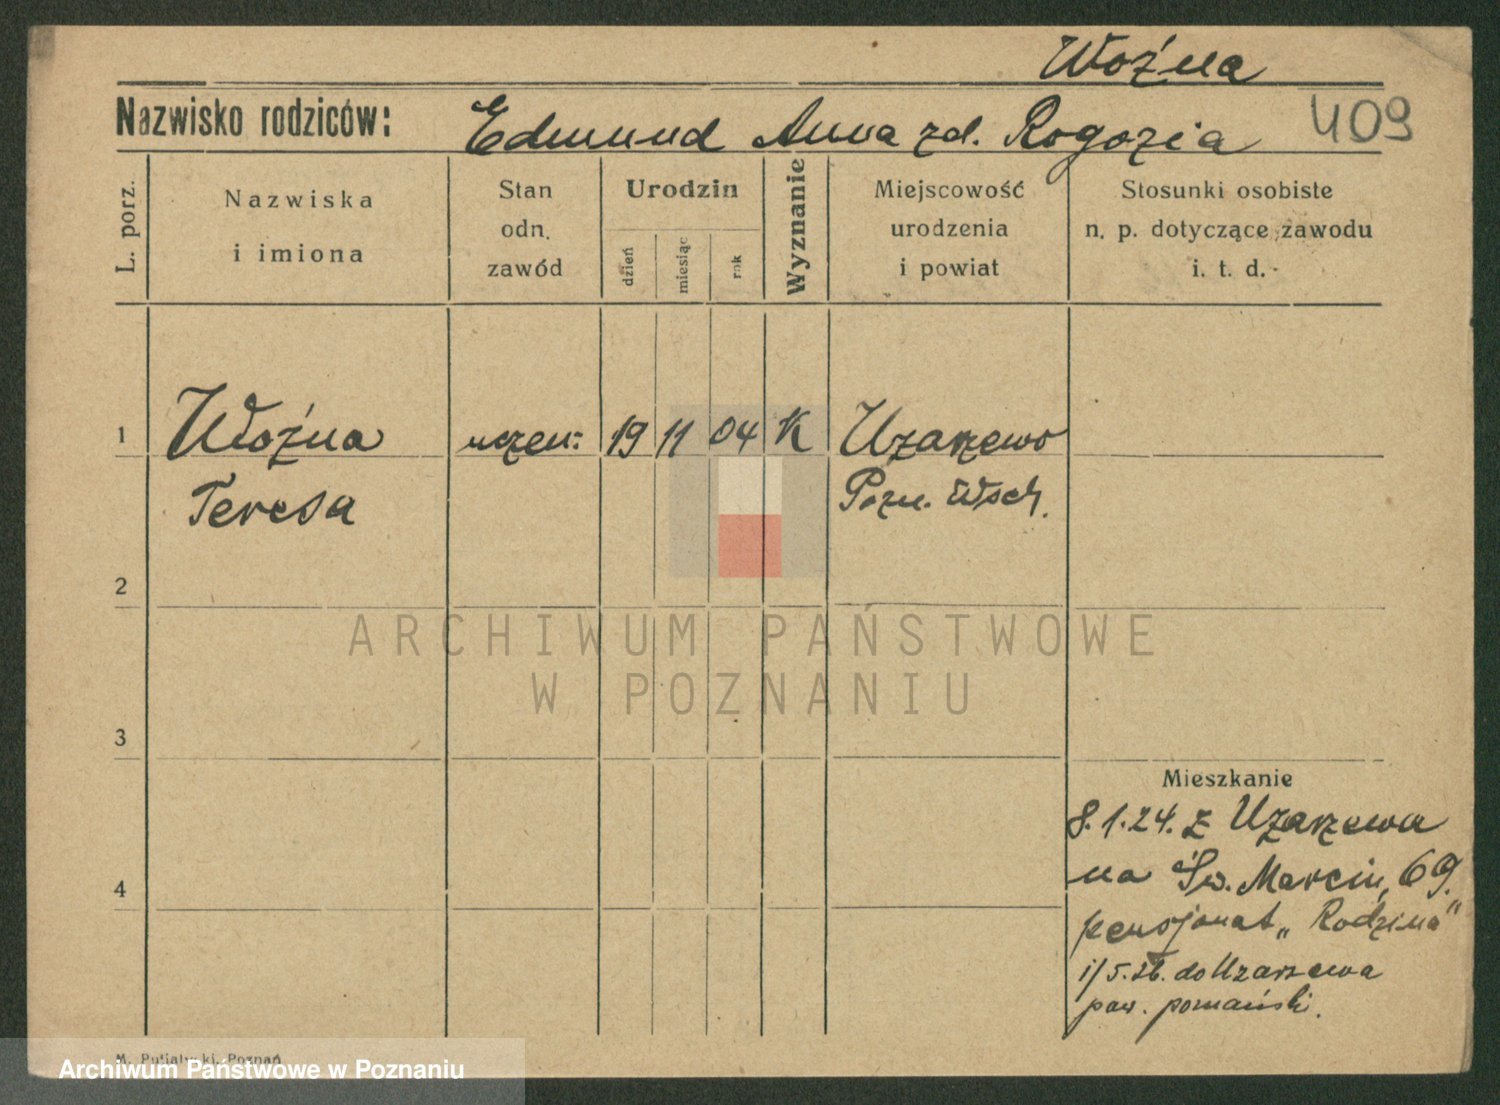 Woźna
Nazwisko rodziców: Edmund Anna zd. Rogozia 409
L. porz.
Nazwiska
i imiona
Stan
odn.
zawód
Urodzin
dzień
miesiąc
rok
Wyznanie
Miejscowość
urodzenia
i powiat
Stosunki osobiste
n. p. dotyczące zawodu
i. t. d.
1 Woźna uczen: 19 11 04 K Uzarzewo
Teresa Pozn. Wsch.
2
ARCHIWUM PAŃSTWOWE
W POZNANIU
3
Mieszkanie
8.1.24. z Uzarzewa
4 na Św. Marcin, 69.
pensjonat „Rodzina"
1/5.26. do Uzarzewa
pow. poznański.
M. Putiatycki, Poznań
Archiwum Państwowe w Poznaniu